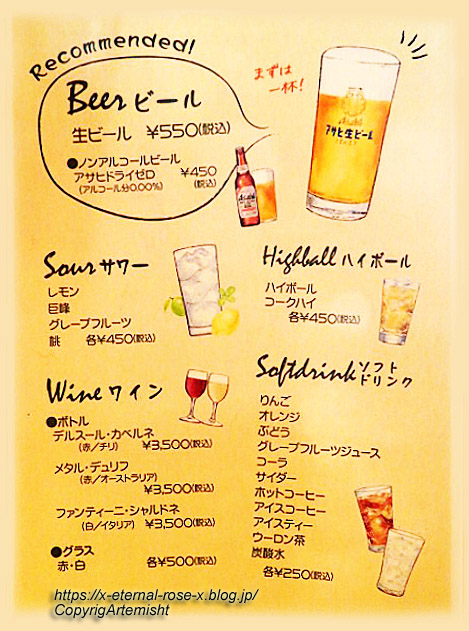 Recommended!
Beer ビール
生ビール ¥550(税込)
●ノンアルコールビール
アサヒドライゼロ ¥450
(アルコール分0.00%) (税込)
まずは
一杯!
Asahi
アサヒ生ビール
Sour サワー
レモン
巨峰
グレープフルーツ
桃 各¥450(税込)
Highball ハイボール
ハイボール
コークハイ
各¥450(税込)
Wine ワイン
●ボトル
デルスール・カベルネ
(赤/チリ) ¥3,500(税込)
メタル・デュリフ
(赤/オーストラリア)
¥3,500(税込)
ファンティーニ・シャルドネ
(白/イタリア) ¥3,500(税込)
●グラス
赤・白 各¥500(税込)
Softdrink ソフト
ドリンク
りんご
オレンジ
ぶどう
グレープフルーツジュース
コーラ
サイダー
ホットコーヒー
アイスコーヒー
アイスティー
ウーロン茶
炭酸水
各¥250(税込)
https://x-eternal-rose-x.blog.jp/
CopyrigArtemisht